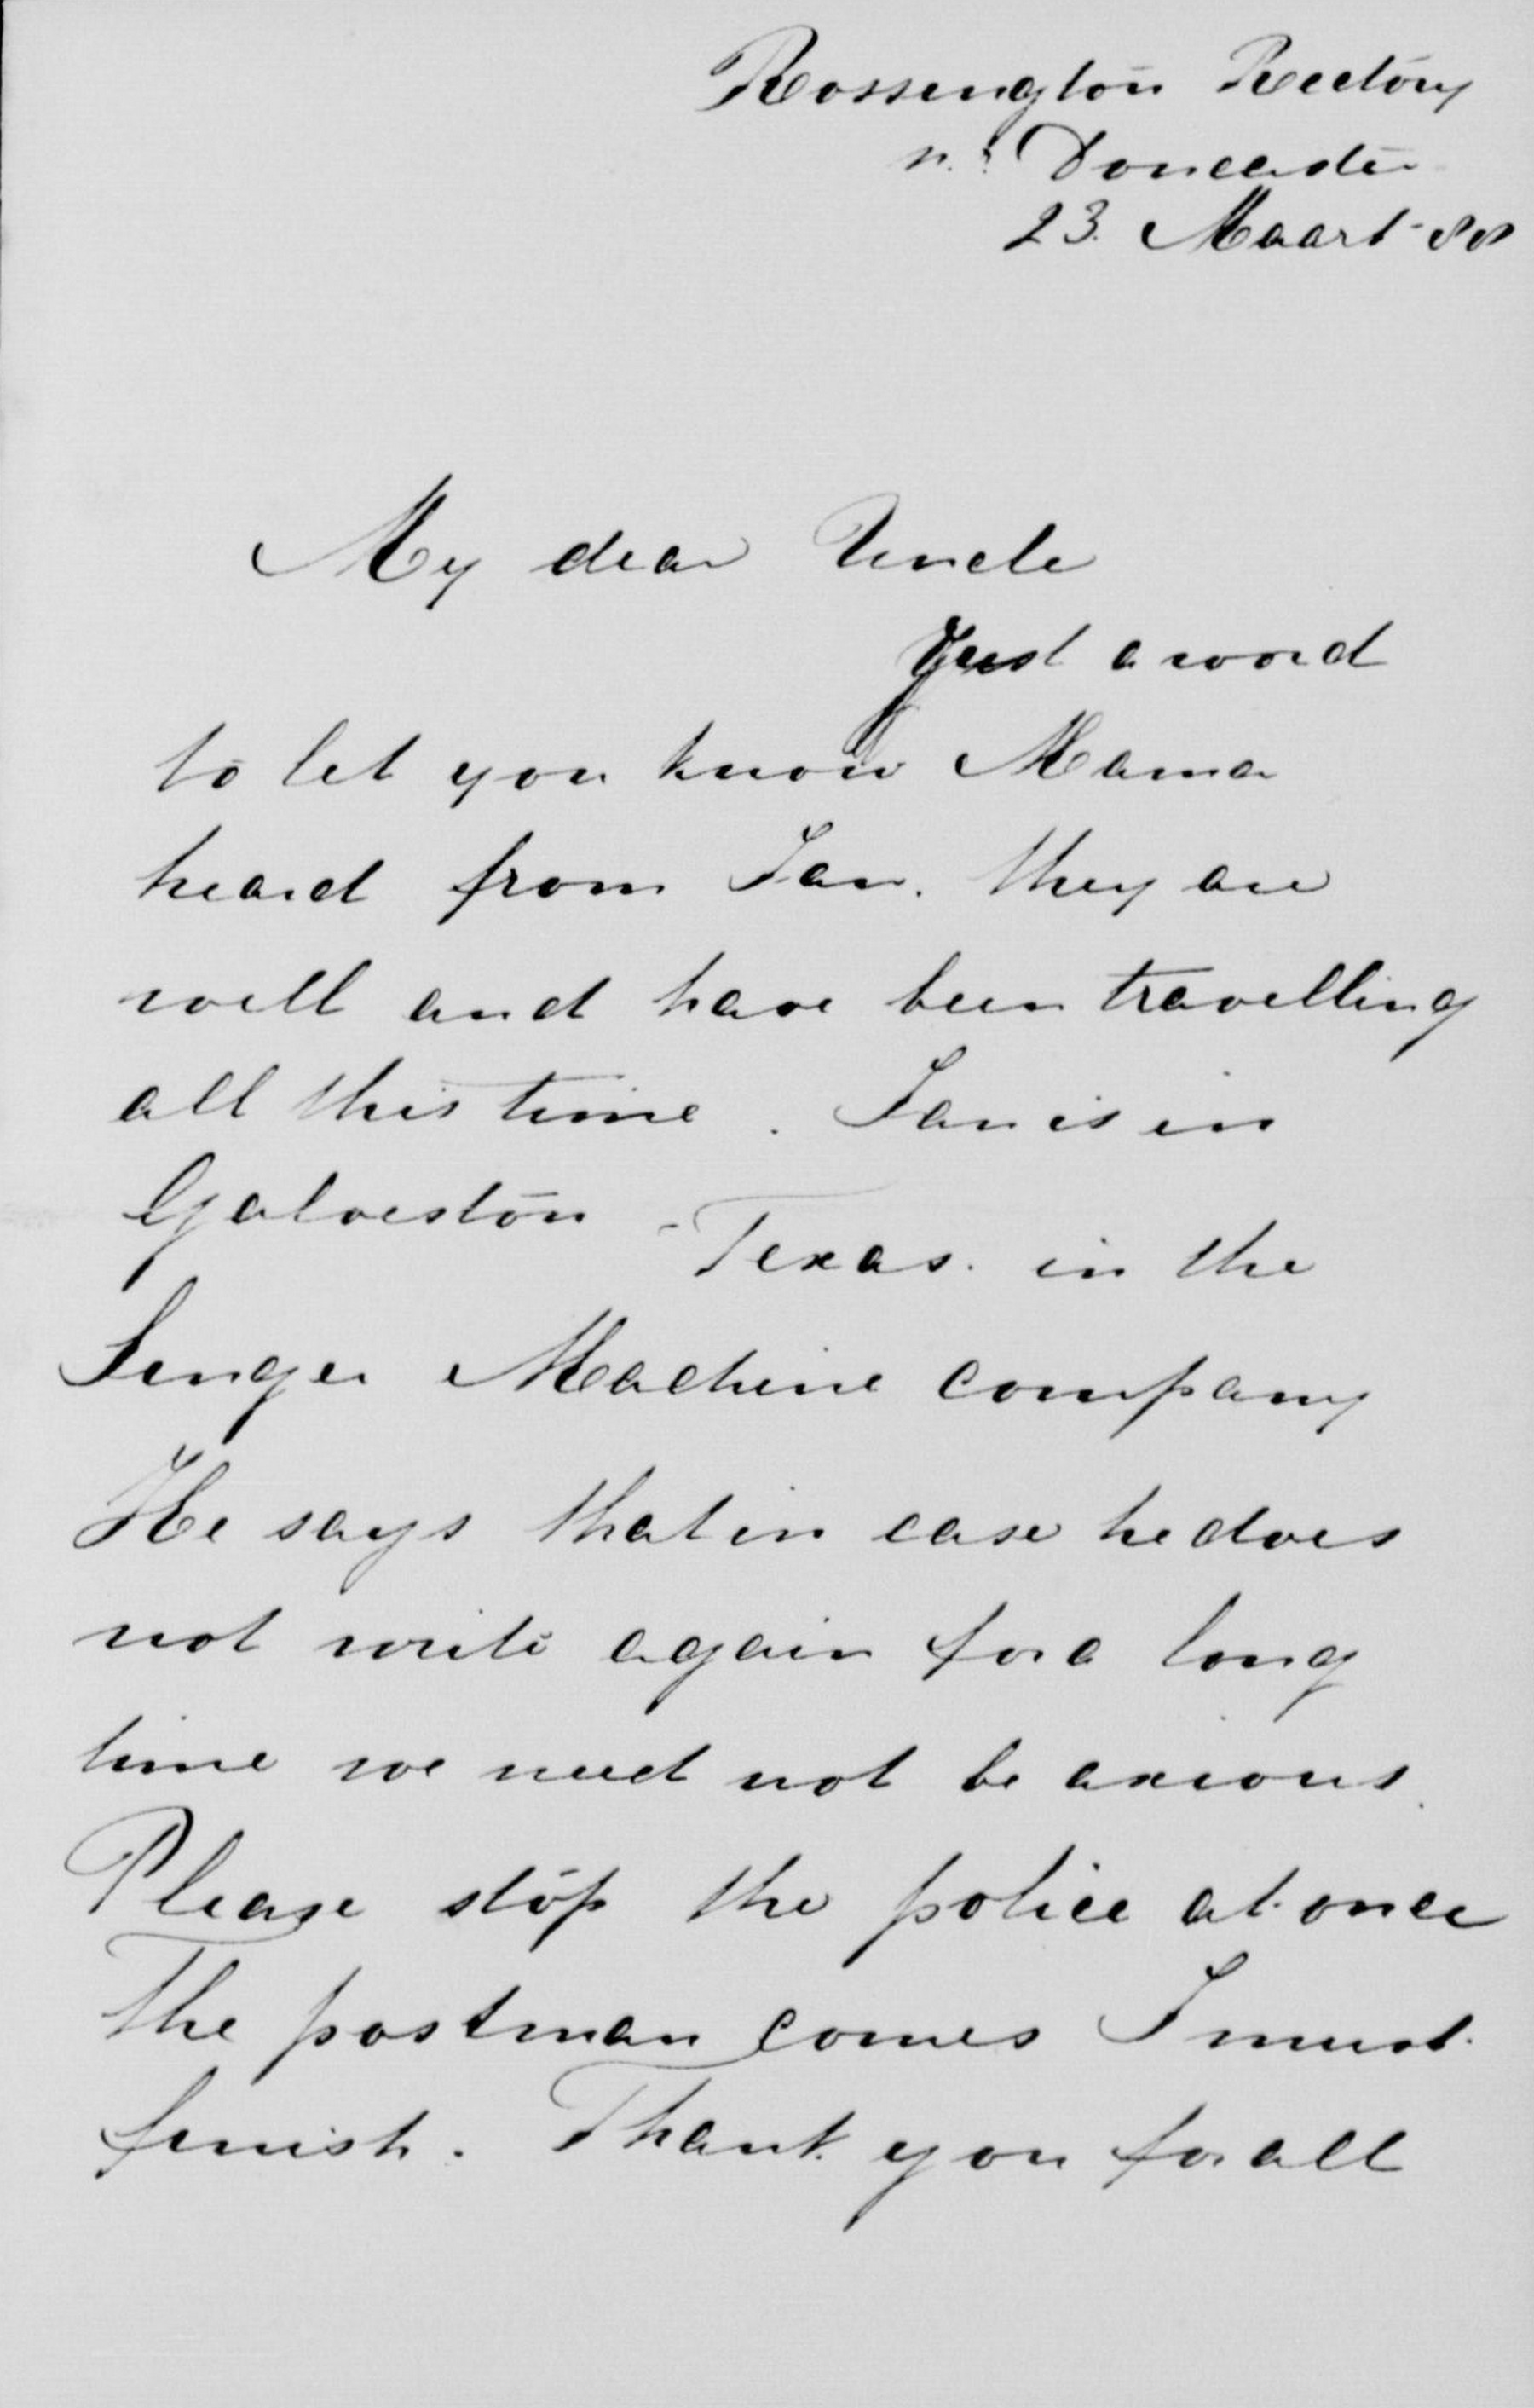 Rossengton Rectory
nr Doncaster
23. Maart - 88
My dear Uncle
Just a word
to let you know Mama
heard from Jan. they are
well and have been travelling
all this time. Jan is in
Galveston - Texas. in the
Singer Machine company
He says that in case he does
not write again for a long
time we need not be axious.
Please stop the police at once
The postman comes I must
finish. Thank you for all